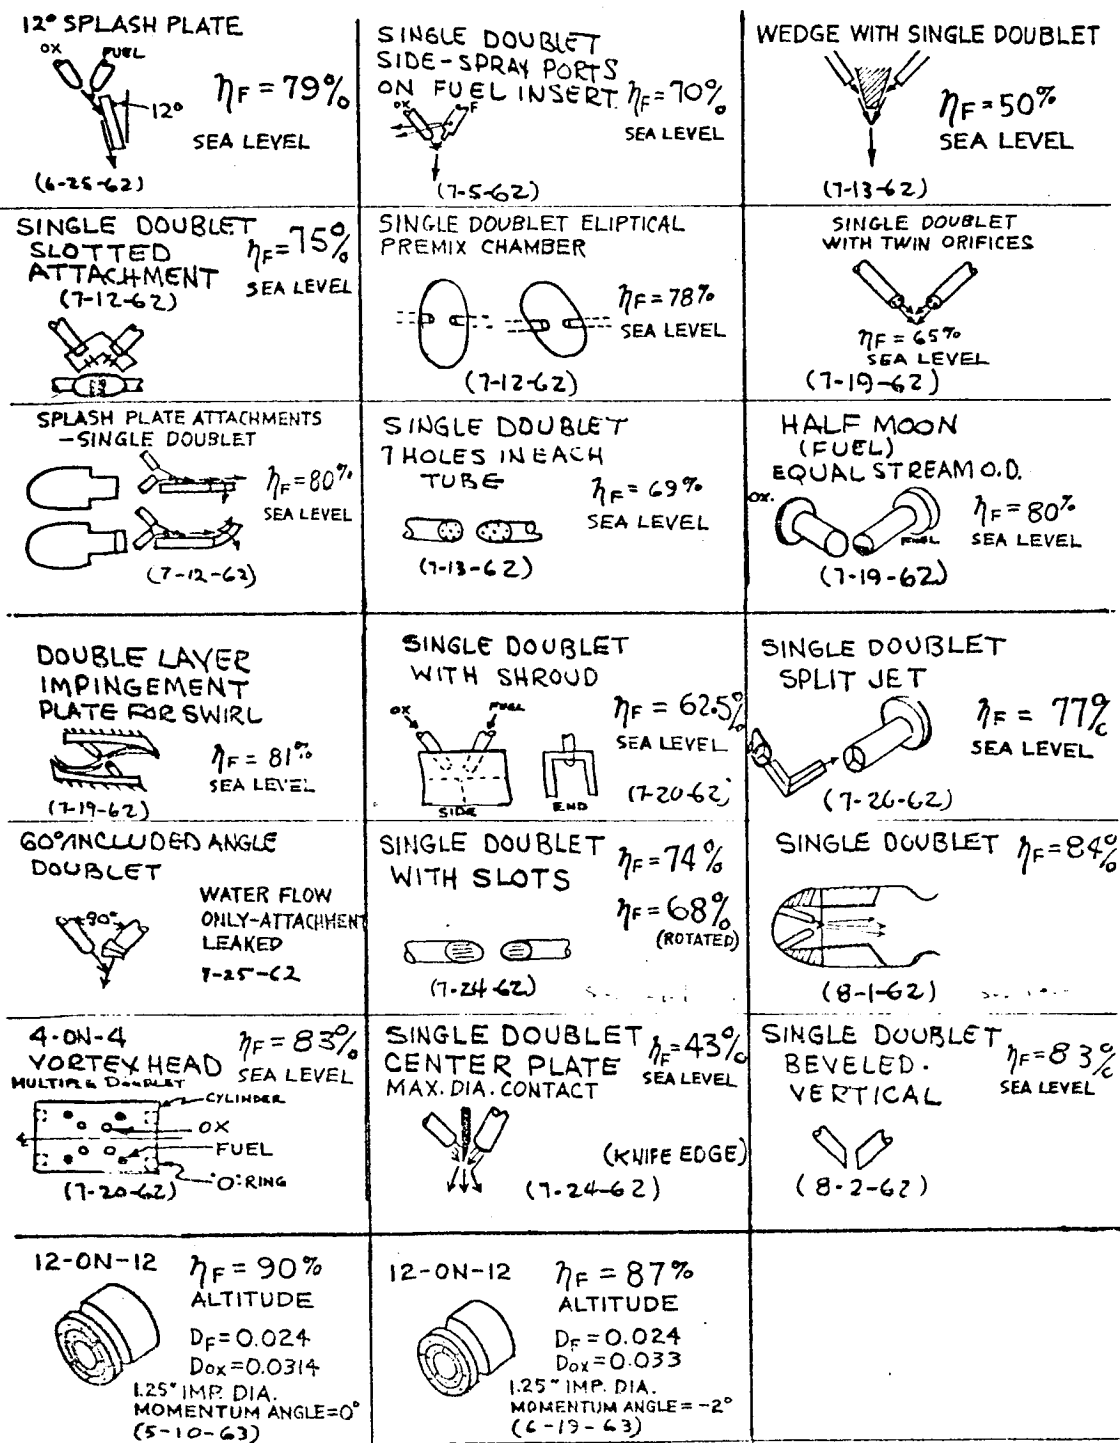 12° SPLASH PLATE
OX
FUEL
12°
ηF = 79%
SEA LEVEL
(6-25-62)
SINGLE DOUBLET
SIDE-SPRAY PORTS
ON FUEL INSERT
ηF = 70%
OX
F
SEA LEVEL
(7-5-62)
WEDGE WITH SINGLE DOUBLET
ηF = 50%
SEA LEVEL
(7-13-62)
SINGLE DOUBLET
SLOTTED
ATTACHMENT
(7-12-62)
ηF = 75%
SEA LEVEL
SINGLE DOUBLET ELIPTICAL
PREMIX CHAMBER
ηF = 78%
SEA LEVEL
(7-12-62)
SINGLE DOUBLET
WITH TWIN ORIFICES
ηF = 65%
SEA LEVEL
(7-19-62)
SPLASH PLATE ATTACHMENTS
-SINGLE DOUBLET
ηF = 80%
SEA LEVEL
(7-12-62)
SINGLE DOUBLET
7 HOLES IN EACH
TUBE
ηF = 69%
SEA LEVEL
(7-13-62)
HALF MOON
(FUEL)
EQUAL STREAM O.D.
OX.
FUEL
ηF = 80%
SEA LEVEL
(7-19-62)
DOUBLE LAYER
IMPINGEMENT
PLATE FOR SWIRL
ηF = 81%
SEA LEVEL
(7-19-62)
SINGLE DOUBLET
WITH SHROUD
OX
FUEL
ηF = 62.5%
SEA LEVEL
SIDE
END
(7-20-62)
SINGLE DOUBLET
SPLIT JET
ηF = 77%
SEA LEVEL
(7-26-62)
60° INCLUDED ANGLE
DOUBLET
90°
WATER FLOW
ONLY-ATTACHMENT
LEAKED
7-25-62
SINGLE DOUBLET
WITH SLOTS
ηF = 74%
ηF = 68%
(ROTATED)
(7-24-62)
SINGLE DOUBLET
ηF = 84%
(8-1-62)
4-ON-4
VORTEX HEAD
MULTIPLE DOUBLET
ηF = 83%
SEA LEVEL
CYLINDER
OX
FUEL
"O" RING
(7-20-62)
SINGLE DOUBLET
CENTER PLATE
MAX. DIA. CONTACT
ηF = 43%
SEA LEVEL
(KNIFE EDGE)
(7-24-62)
SINGLE DOUBLET
BEVELED.
VERTICAL
ηF = 83%
SEA LEVEL
(8-2-62)
12-ON-12
ηF = 90%
ALTITUDE
DF = 0.024
Dox = 0.0314
1.25" IMP. DIA.
MOMENTUM ANGLE = 0°
(5-10-63)
12-ON-12
ηF = 87%
ALTITUDE
DF = 0.024
Dox = 0.033
1.25" IMP. DIA.
MOMENTUM ANGLE = -2°
(6-19-63)